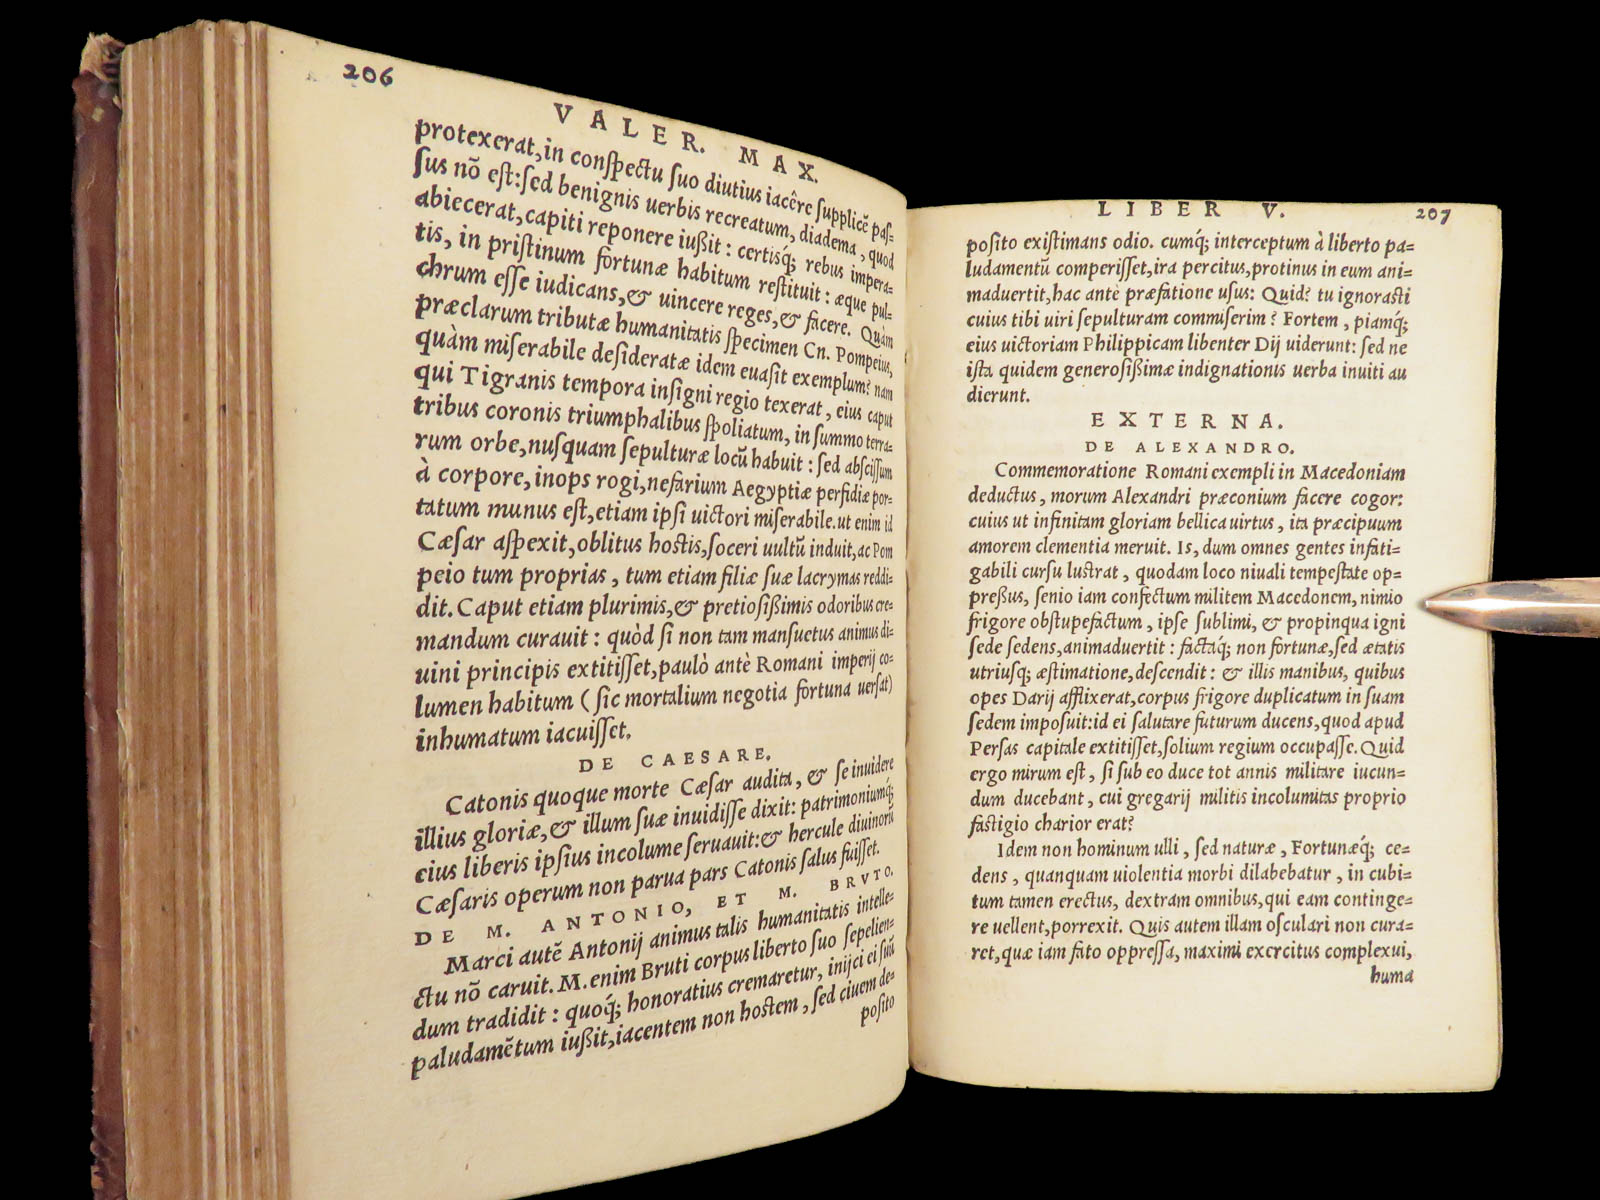 206
VALER. MAX.
protexerat, in conspectu suo diutius iacêre supplicẽ pas-
sus nõ est: sed benignis uerbis recreatum, diadema, quod
abiecerat, capiti reponere iußit: certisq́; rebus impera-
tis, in pristinum fortunæ habitum restituit: æque pul-
chrum esse iudicans, & uincere reges, & facere. Quàm
præclarum tributæ humanitatis specimen Cn. Pompeius,
quàm miserabile desideratæ idem euasit exemplum? nam
qui Tigranis tempora insigni regio texerat, eius caput
tribus coronis triumphalibus spoliatum, in summo terra-
rum orbe, nusquam sepulturæ locũ habuit: sed abscissum
à corpore, inops rogi, nefarium Aegyptiæ perfidiæ por-
tatum munus est, etiam ipsi uictori miserabile. ut enim id
Cæsar aspexit, oblitus hostis, soceri uultũ induit, ac Pom
peio tum proprias, tum etiam filiæ suæ lacrymas reddi-
dit. Caput etiam plurimis, & pretiosißimis odoribus cre-
mandum curauit: quòd si non tam mansuetus animus di-
uini principis extitisset, paulò antè Romani imperij co-
lumen habitum (sic mortalium negotia fortuna uersat)
inhumatum iacuisset.
DE CAESARE.
Catonis quoque morte Cæsar audita, & se inuidere
illius gloriæ, & illum suæ inuidisse dixit: patrimoniumq́;
eius liberis ipsius incolume seruauit: & hercule diuinorũ
Cæsaris operum non parua pars Catonis salus fuisset.
DE M. ANTONIO, ET M. BRVTO.
Marci autẽ Antonij animus talis humanitatis intelle-
ctu nõ caruit. M. enim Bruti corpus liberto suo sepelien-
dum tradidit: quoq́; honoratius cremaretur, inijci ei suũ
paludamẽtum iußit, iacentem non hostem, sed ciuem de-
posito
LIBER V.
207
posito existimans odio. cumq́; interceptum à liberto pa-
ludamentũ comperisset, ira percitus, protinus in eum ani-
maduertit, hac antè præfatione usus: Quid? tu ignorasti
cuius tibi uiri sepulturam commiserim? Fortem, piamq́;
eius uictoriam Philippicam libenter Dij uiderunt: sed ne
ista quidem generosißimæ indignationis uerba inuiti au
dierunt.
EXTERNA.
DE ALEXANDRO.
Commemoratione Romani exempli in Macedoniam
deductus, morum Alexandri præconium facere cogor:
cuius ut infinitam gloriam bellica uirtus, ita præcipuum
amorem clementia meruit. Is, dum omnes gentes infati-
gabili cursu lustrat, quodam loco niuali tempestate op-
preßus, senio iam confectum militem Macedonem, nimio
frigore obstupefactum, ipse sublimi, & propinqua igni
sede sedens, animaduertit: factaq́; non fortunæ, sed ætatis
utriusq; æstimatione, descendit: & illis manibus, quibus
opes Darij afflixerat, corpus frigore duplicatum in suam
sedem imposuit: id ei salutare futurum ducens, quod apud
Persas capitale extitisset, solium regium occupasse. Quid
ergo mirum est, si sub eo duce tot annis militare iucun-
dum ducebant, cui gregarij militis incolumitas proprio
fastigio charior erat?
Idem non hominum ulli, sed naturæ, Fortunæq́; ce-
dens, quanquam uiolentia morbi dilabebatur, in cubi-
tum tamen erectus, dextram omnibus, qui eam continge-
re uellent, porrexit. Quis autem illam osculari non cura-
ret, quæ iam fato oppressa, maximi exercitus complexui,
huma